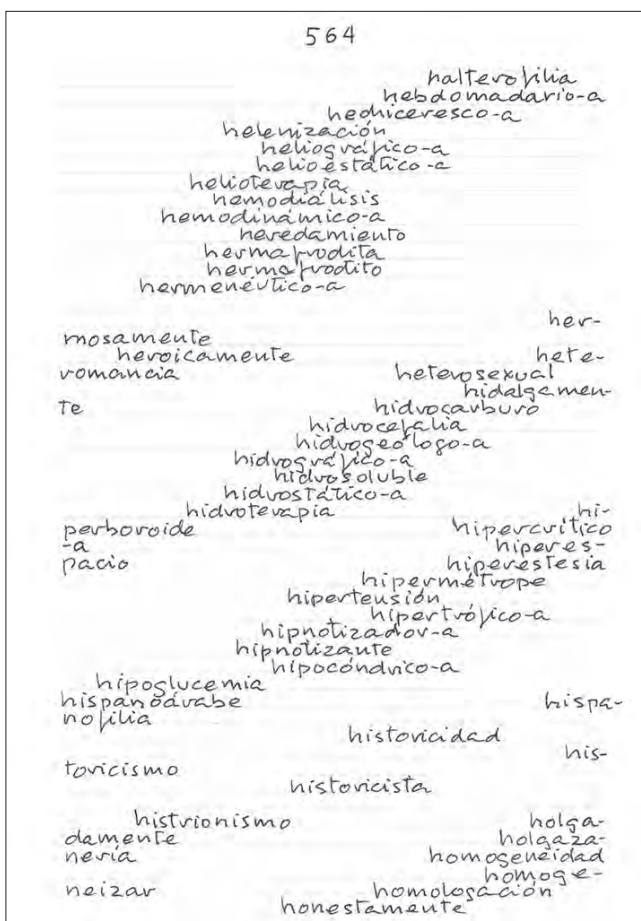 564
halterofilia
hebdomadario-a
hechiceresco-a
helenización
heliográfico-a
helioestático-a
helioterapia
hemodiálisis
hemodinámico-a
heredamiento
hermafrodita
hermafrodito
hermenéutico-a
her-
mosamente
heroicamente hete-
romancia heterosexual
hidalgamen-
te hidrocarburo
hidrocefalia
hidrogeólogo-a
hidrográfico-a
hidrosoluble
hidrostático-a
hidroterapia hi-
perboroide hipercrítico
-a hiperes-
pacio hiperestesia
hipermétrope
hipertensión
hipertrófico-a
hipnotizador-a
hipnotizante
hipocóndrico-a
hipoglucemia
hispanoárabe hispa-
nofilia
historicidad
his-
toricismo
historicista
histrionismo holga-
damente holgaza-
nería homogeneidad
homoge-
neizar homologación
honestamente